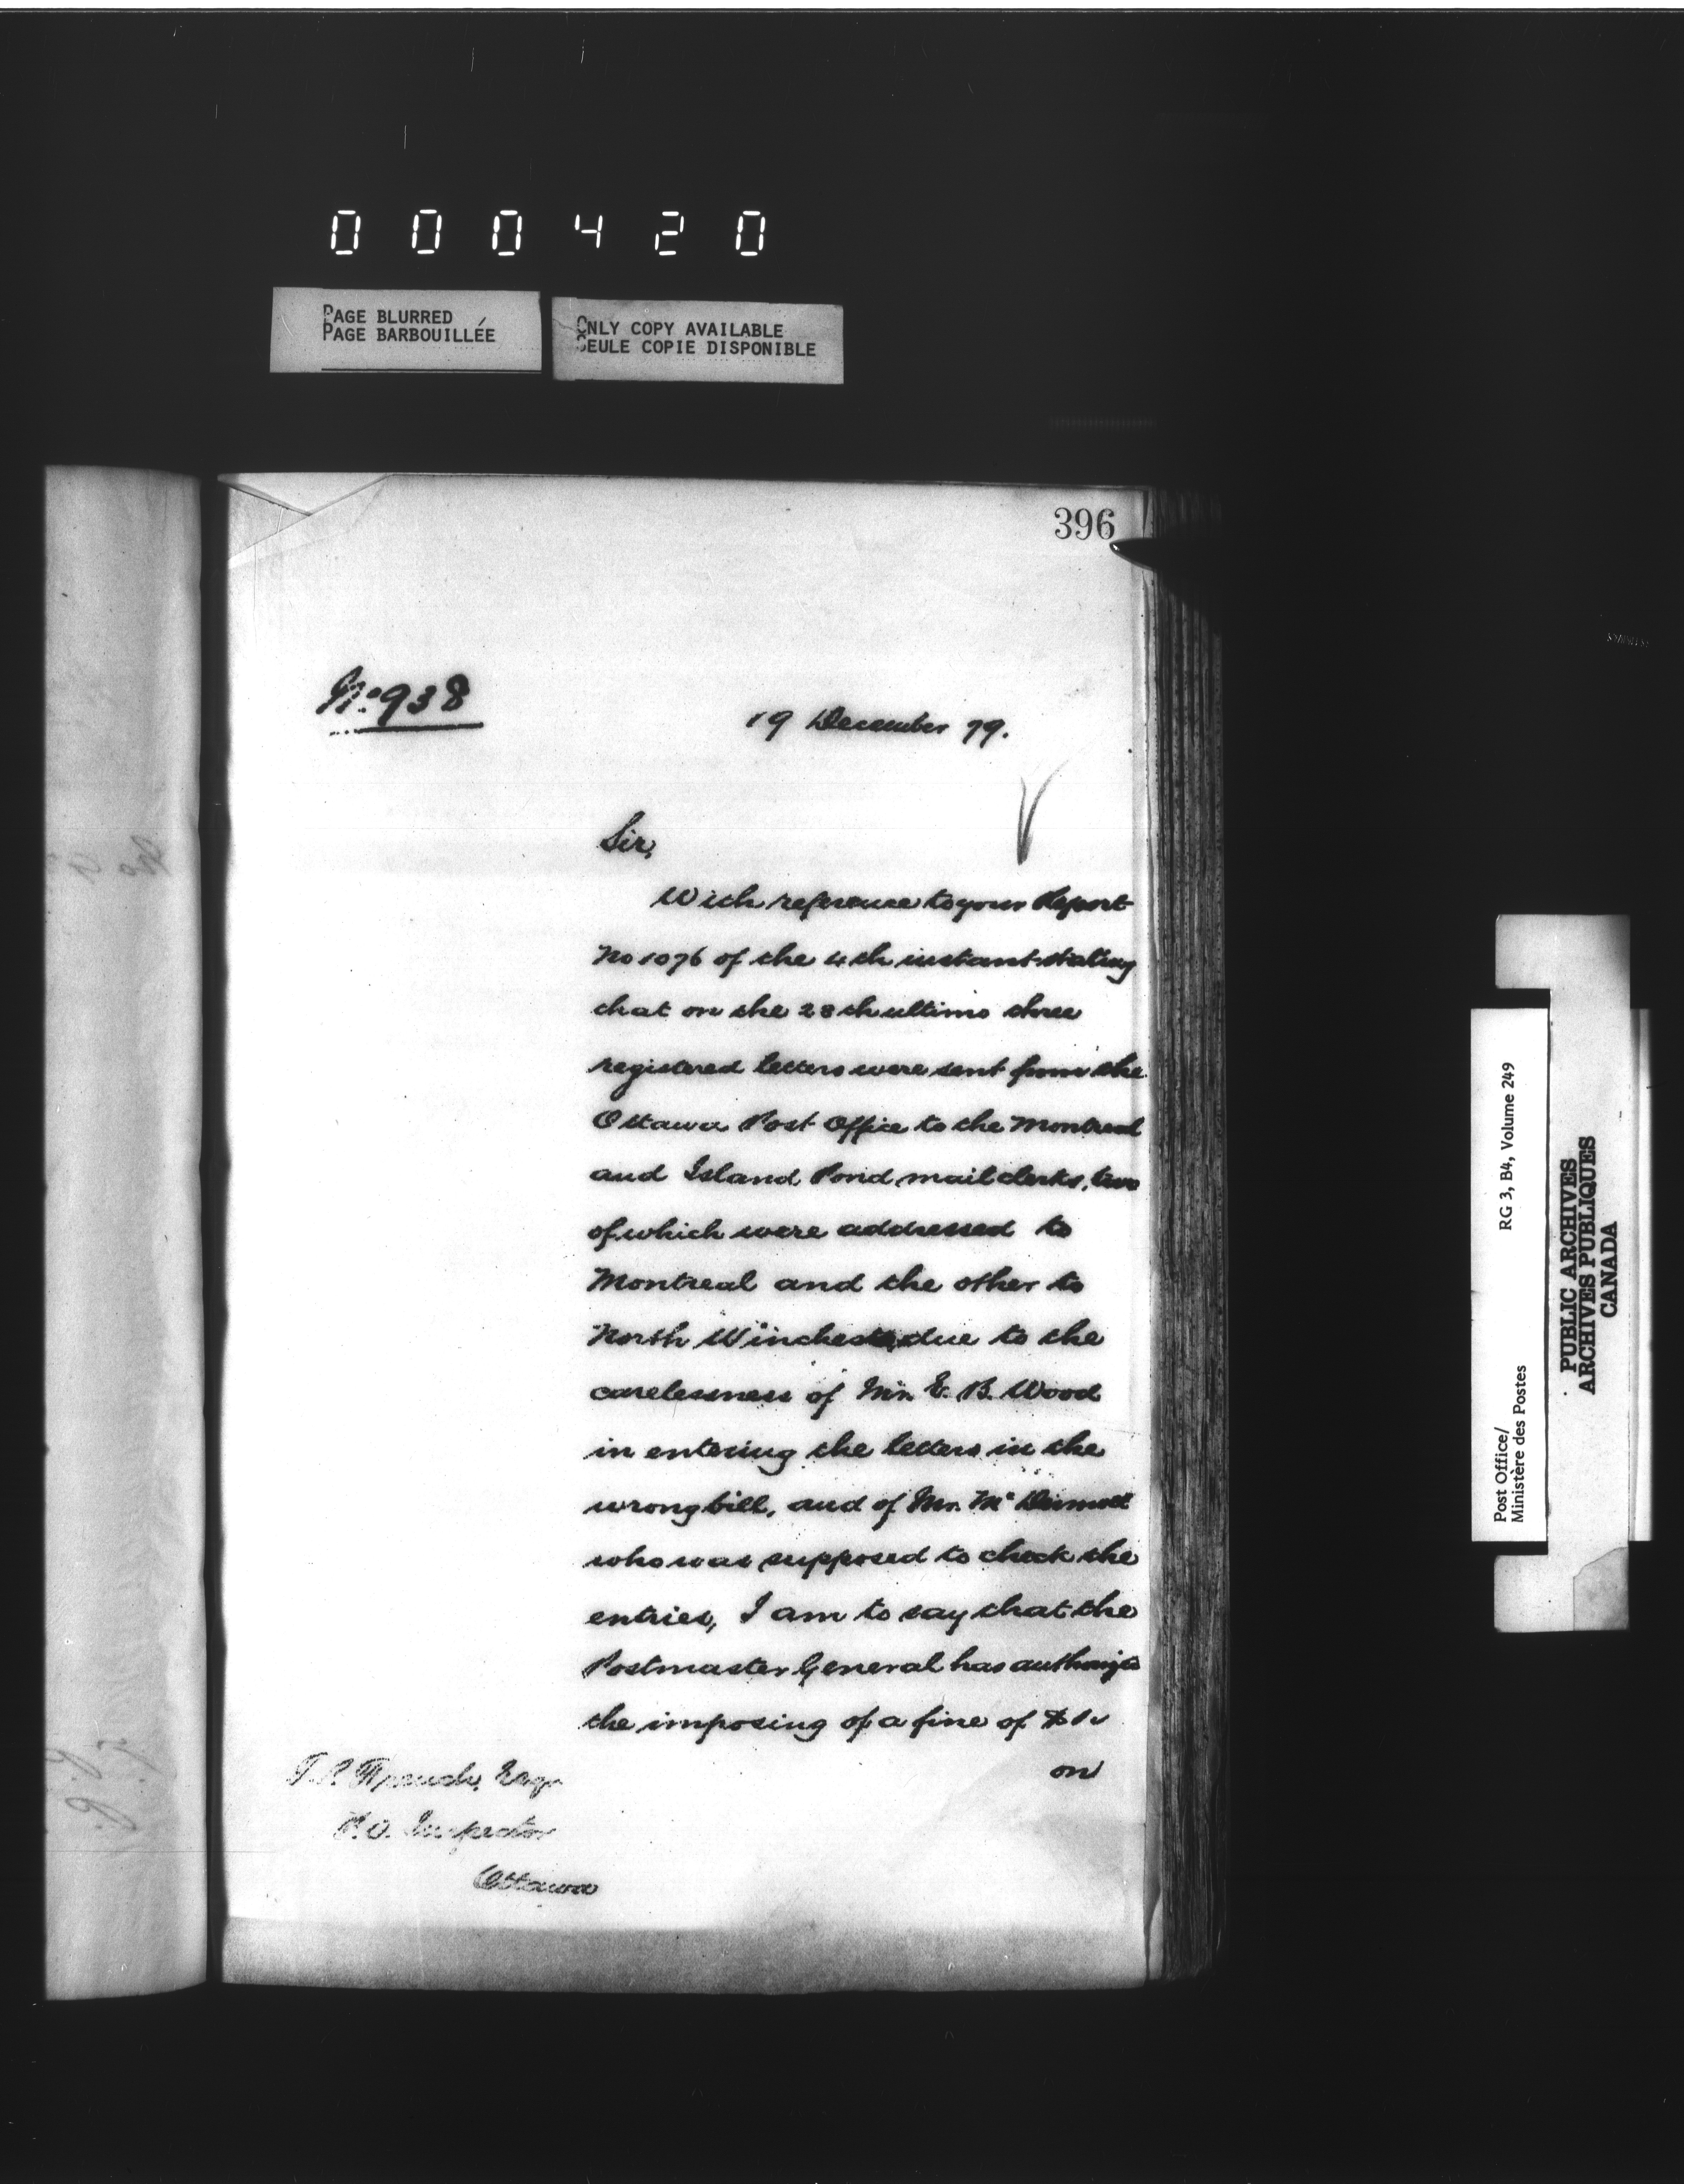 000420
PAGE BLURRED
PAGE BARBOUILLÉE
ONLY COPY AVAILABLE
SEULE COPIE DISPONIBLE
396
No. 938
19 December 79.
Sir,
With reference to your Report
No 1076 of the 4th instant stating
that on the 28th ultimo three
registered letters were sent from the
Ottawa Post Office to the Montreal
and Island Pond mail clerks, two
of which were addressed to
Montreal and the other to
North Winchester, due to the
carelessness of Mr. E. B. Wood
in entering the letters in the
wrong bill, and of Mr. McDermott
who was supposed to check the
entries, I am to say that the
Postmaster General has
the imposing of a fine of
on
T. P. French, Esqr
P.O. Inspector
Ottawa
Post Office/ RG 3, B4, Volume 249
Ministère des Postes
PUBLIC ARCHIVES
ARCHIVES PUBLIQUES
CANADA